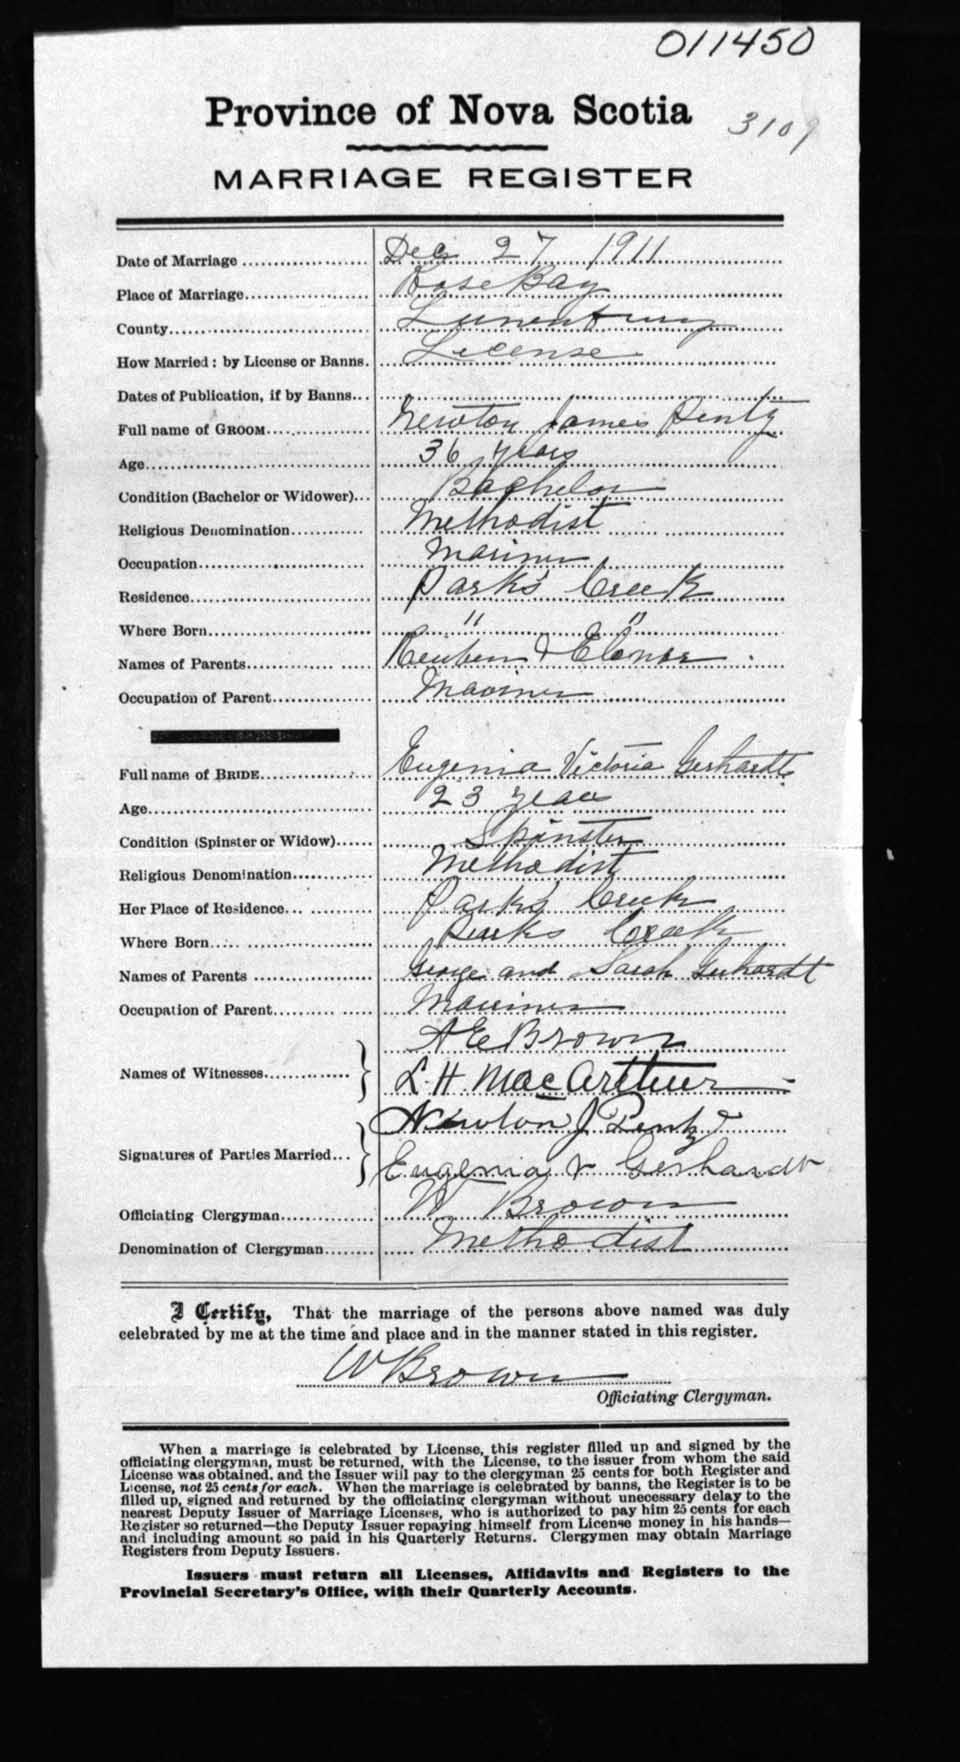 011450
Province of Nova Scotia
3109
MARRIAGE REGISTER
Date of Marriage ........ Dec 27 1911
Place of Marriage........ Rose Bay
County........ Lunenburg
How Married: by License or Banns. License
Dates of Publication, if by Banns...
Full name of GROOM........ Newton James Pentz
Age........ 36 years
Condition (Bachelor or Widower)... Bachelor
Religious Denomination........ Methodist
Occupation........ Mariner
Residence........ Parks' Creek
Where Born........ " "
Names of Parents........ Reuben & Elenor
Occupation of Parent........ Mariner
Full name of BRIDE........ Eugenia Victoria Gerhardt
Age........ 23 years
Condition (Spinster or Widow)...... Spinster
Religious Denomination........ Methodist
Her Place of Residence........ Parks Creek
Where Born........ Parks Creek
Names of Parents ........ George and Sarah Gerhardt
Occupation of Parent........ Mariner
A E Brown
Names of Witnesses........ L. H. MacArthur
Newton J Pentz
Signatures of Parties Married... Eugenia V Gerhardt
Officiating Clergyman........ W Brown
Denomination of Clergyman........ Methodist
I Certify, That the marriage of the persons above named was duly
celebrated by me at the time and place and in the manner stated in this register.
W Brown
Officiating Clergyman.
When a marriage is celebrated by License, this register filled up and signed by the
officiating clergyman, must be returned, with the License, to the issuer from whom the said
License was obtained, and the Issuer will pay to the clergyman 25 cents for both Register and
License, not 25 cents for each. When the marriage is celebrated by banns, the Register is to be
filled up, signed and returned by the officiating clergyman without unnecessary delay to the
nearest Deputy Issuer of Marriage Licenses, who is authorized to pay him 25 cents for each
Register so returned—the Deputy Issuer repaying himself from License money in his hands—
and including amount so paid in his Quarterly Returns. Clergymen may obtain Marriage
Registers from Deputy Issuers.
Issuers must return all Licenses, Affidavits and Registers to the
Provincial Secretary's Office, with their Quarterly Accounts.